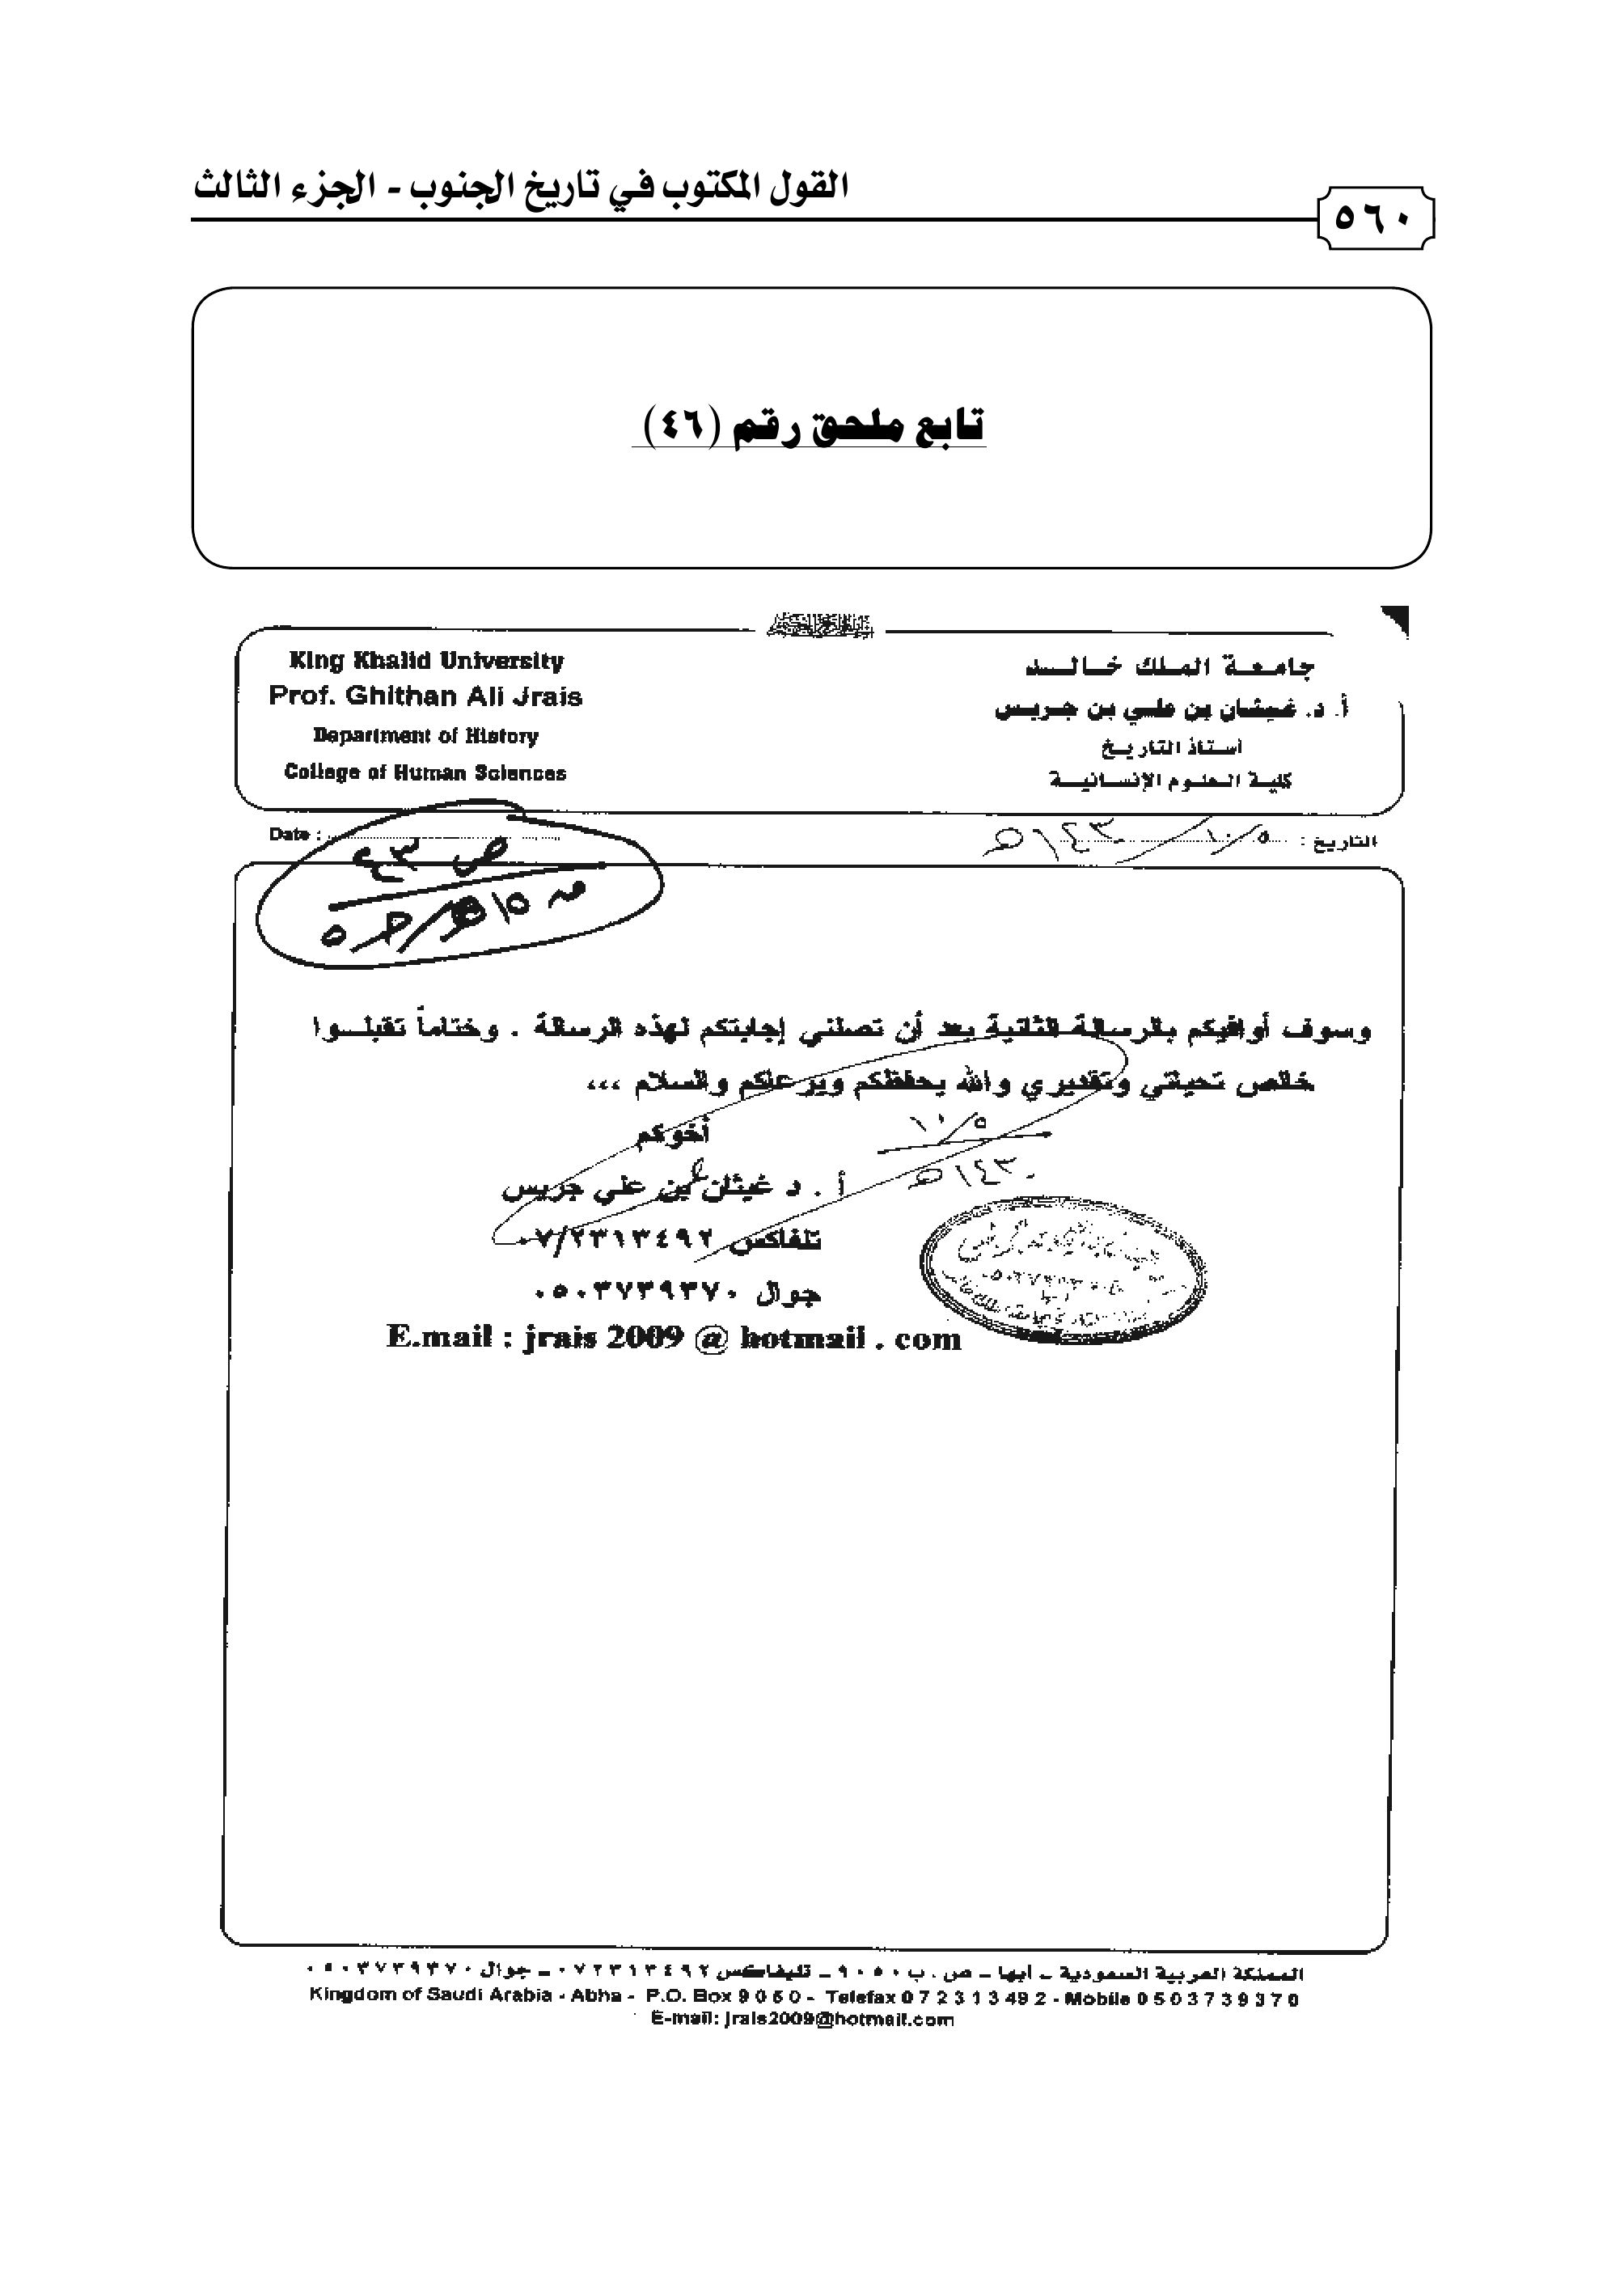 القول المكتوب في تاريخ الجنوب - الجزء الثالث
٥٦٠
تابع ملحق رقم (٤٦)
جامعة الملك خالد
أ. د. غيثان بن علي بن جريس
أستاذ التاريخ
كلية العلوم الإنسانية
King Khalid University
Prof. Ghithan Ali Jrais
Department of History
College of Human Sciences
التاريخ : ١٠/٥ / ١٤٣٠هـ
Date :
وسوف أوافيكم بالرسالة الثانية بعد أن تصلني إجابتكم لهذه الرسالة . وختاماً تقبلوا
خالص تحياتي وتقديري والله يحفظكم ويرعاكم والسلام ...
أخوكم
١٠/٥
١٤٣٠هـ
أ . د غيثان بن علي جريس
تلفاكس ٠٧/٢٣١٣٤٩٢
جوال ٠٥٠٣٧٣٩٣٧٠
E.mail : jrais 2009 @ hotmail . com
المملكة العربية السعودية - أبها - ص . ب ٩٠٥٠ - تليفاكس ٠٧٢٣١٣٤٩٢ - جوال ٠٥٠٣٧٣٩٣٧٠
Kingdom of Saudi Arabia - Abha - P.O. Box 9050 - Telefax 072313492 - Mobile 0503739370
E-mail: jrais2009@hotmail.com